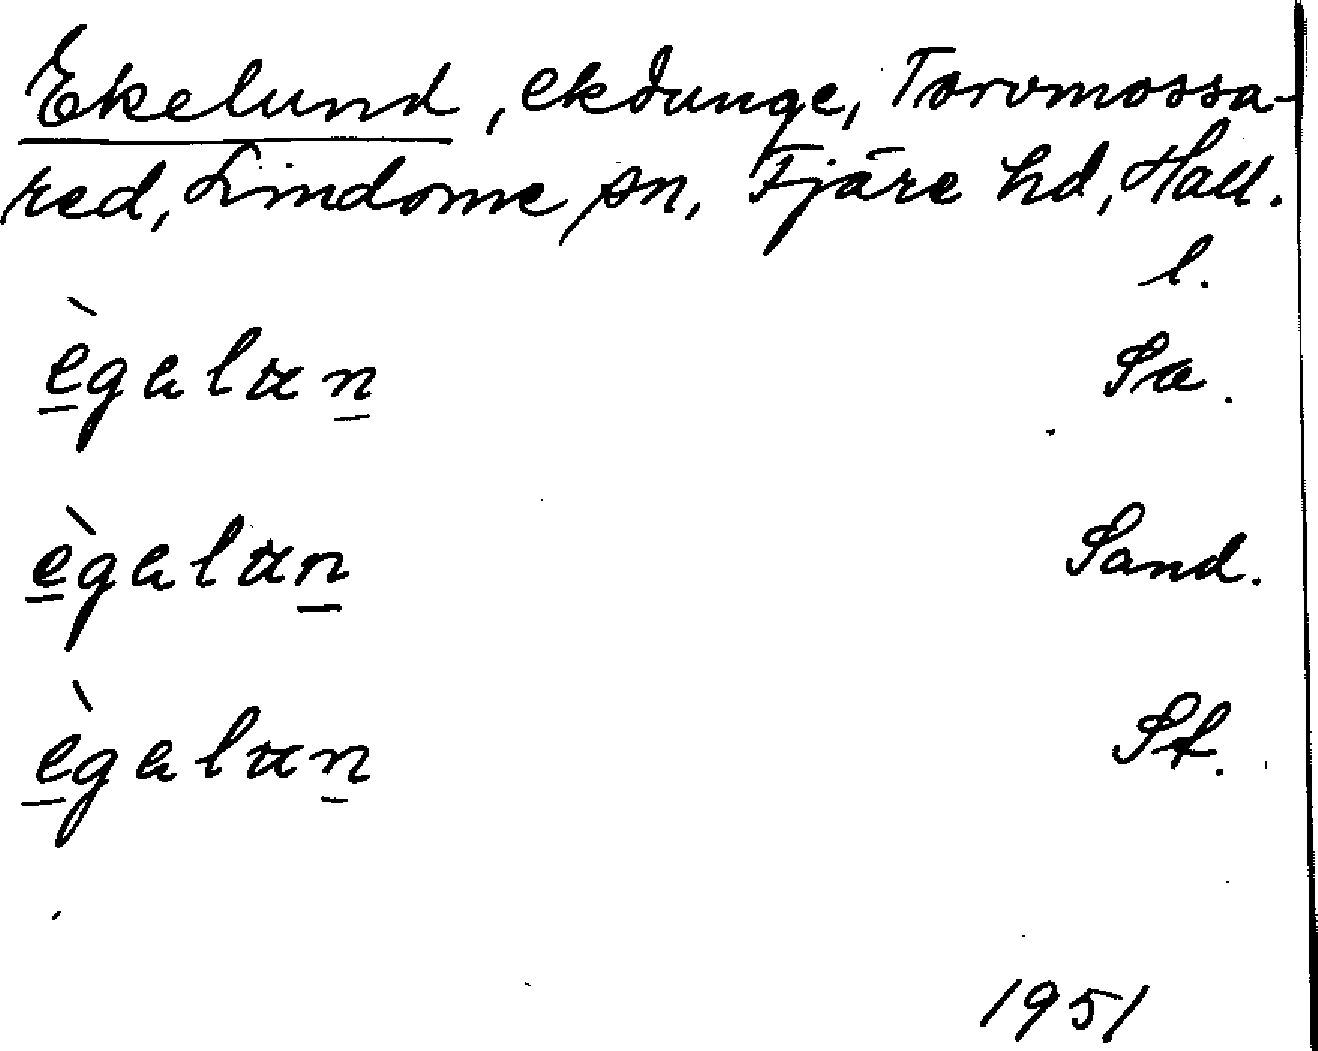 Ekelund, ekdunge, Torvmossa-
red, Lindome sn, Fjäre hd, Hall.
l.
ègəlun Sa.
ègəlun Sand.
ègəlun St.
1951